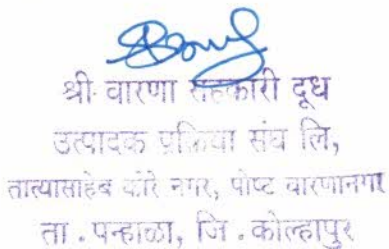 श्री. वारणा सहकारी दूध
उत्पादक प्रक्रिया संघ लि,
तात्यासाहेब कोरे नगर, पोष्ट वारणानगर
ता . पन्हाळा, जि . कोल्हापुर